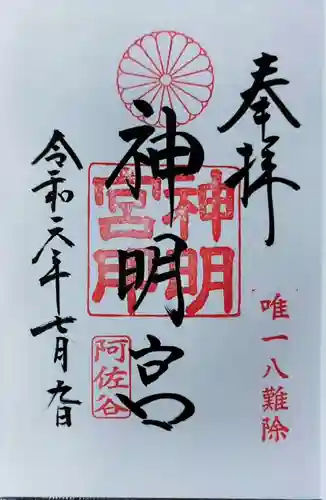 奉拝
唯一八難除
神明宮
神明
宮印
阿佐谷
令和元年七月九日